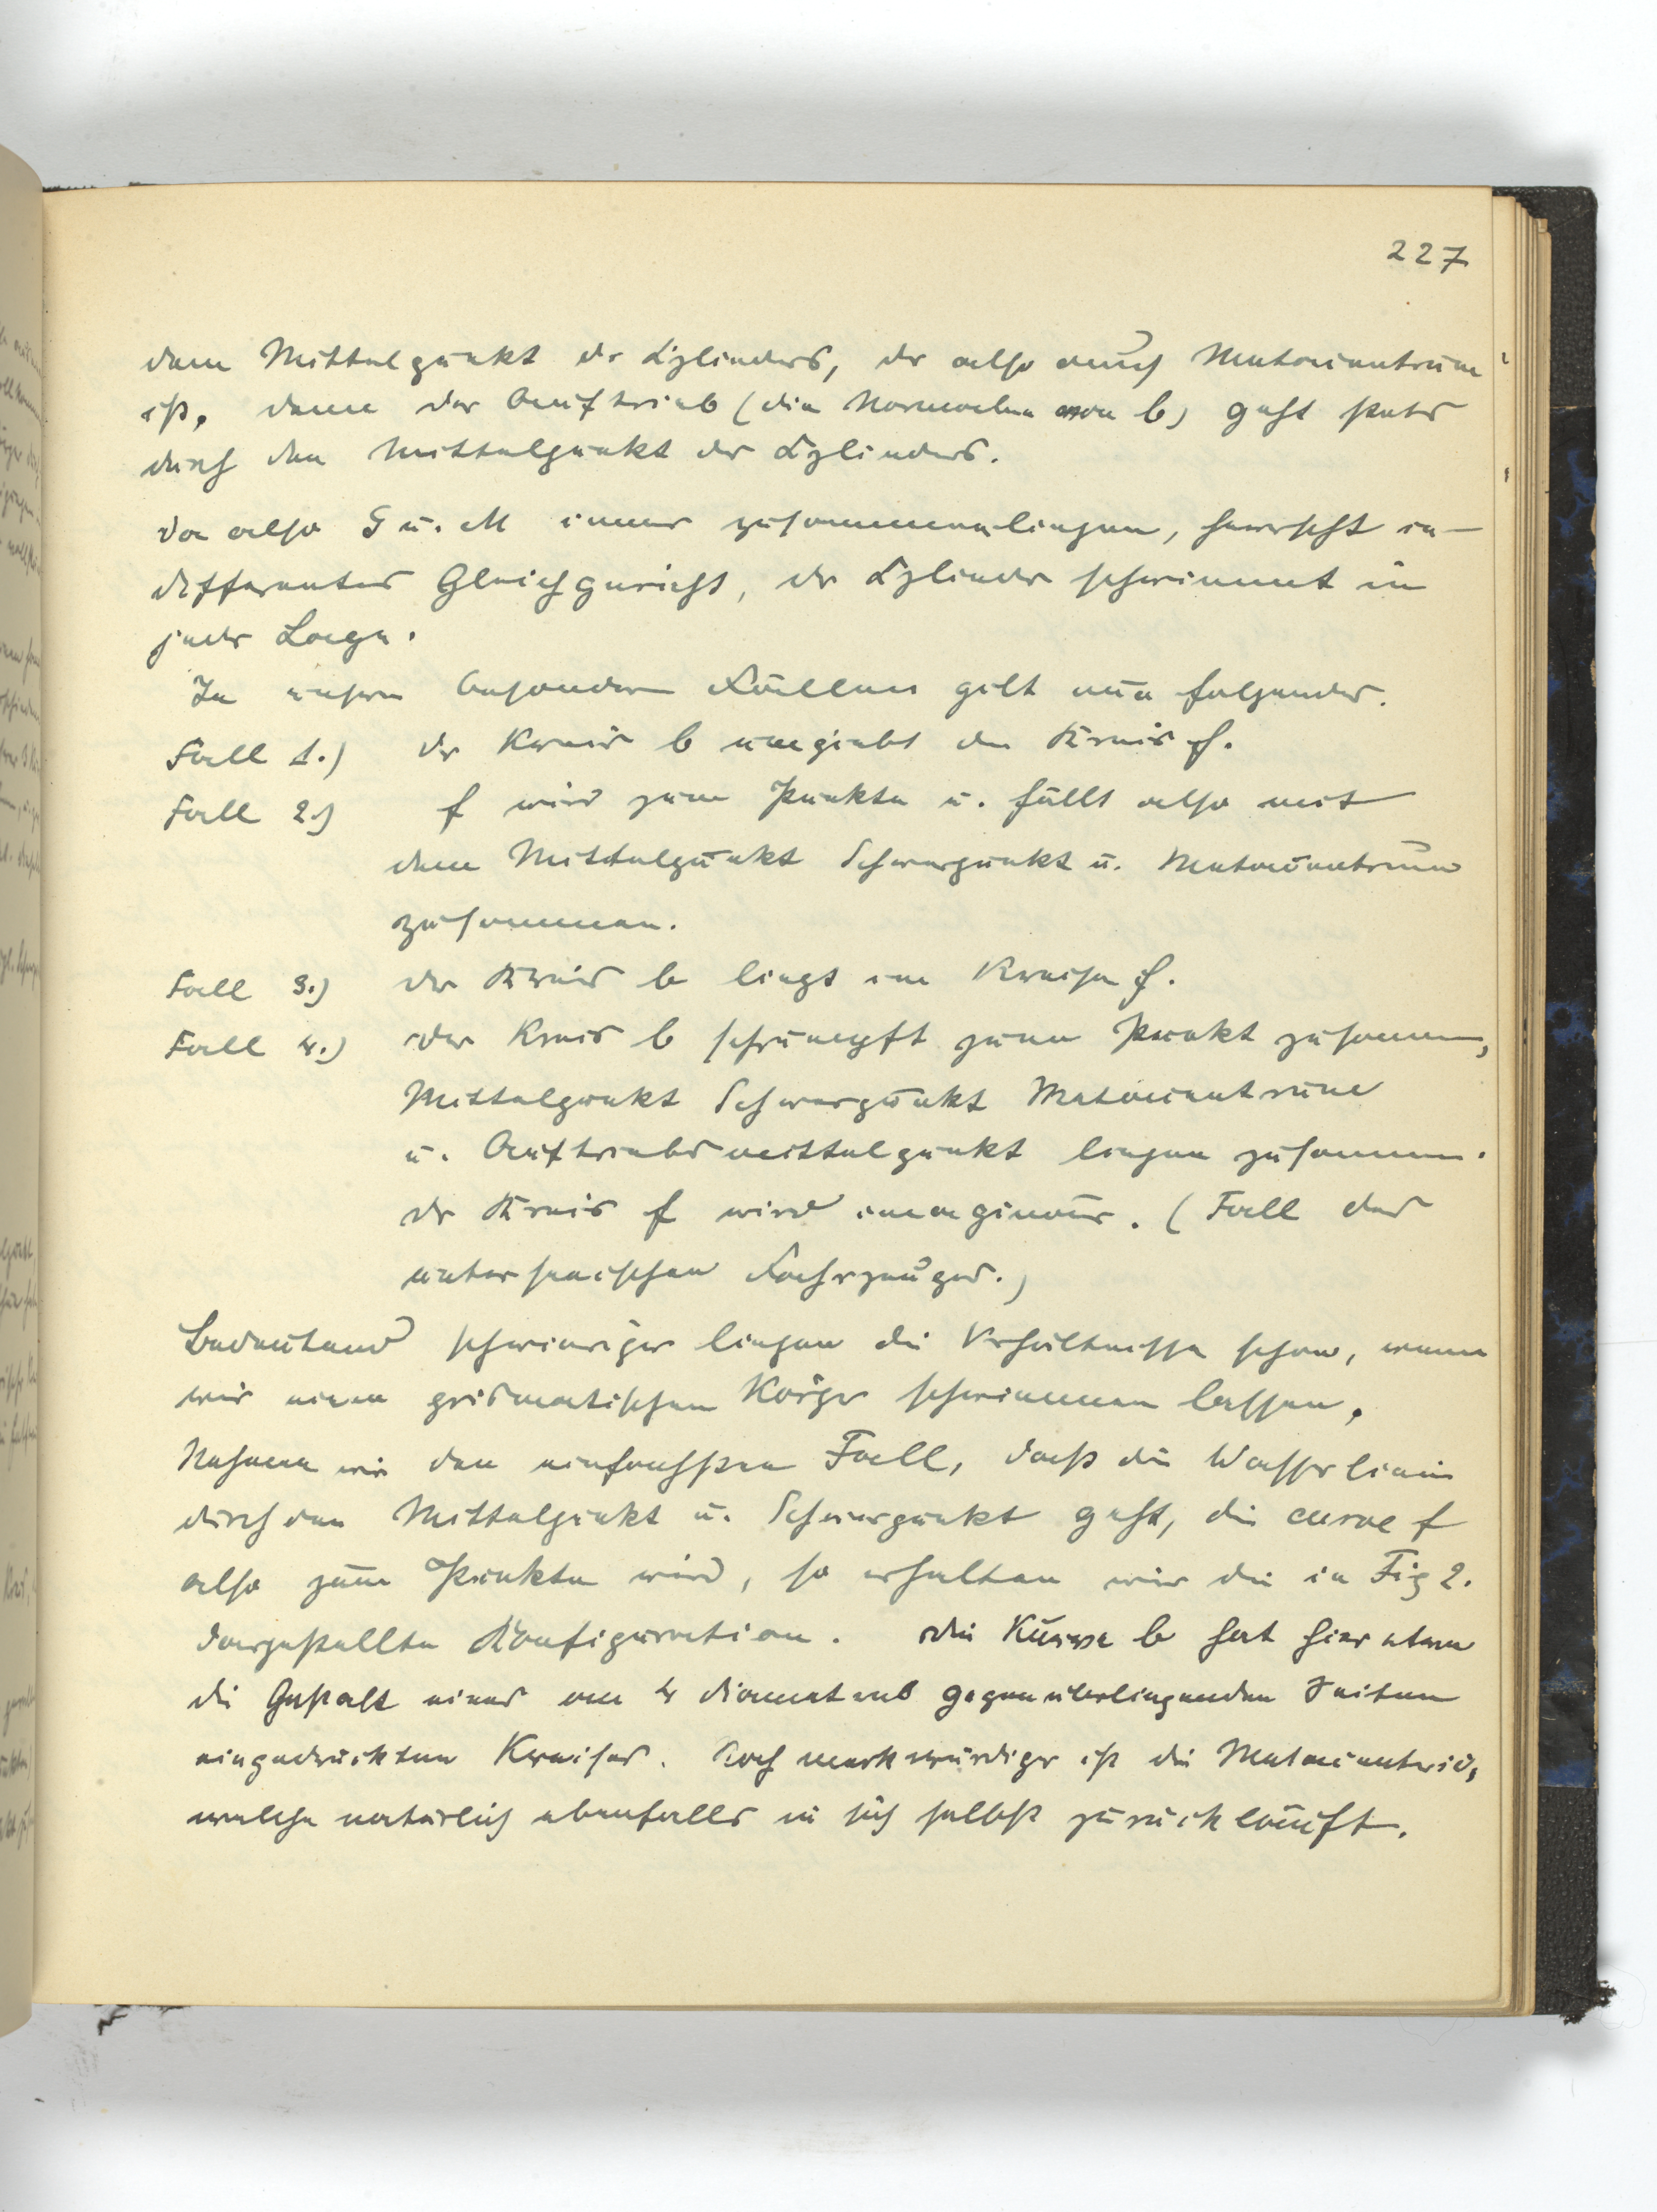 227
dem Mittelpunkt des Cylinders, der also auch Metacentrum
ist, denn der Auftrieb (die Normalen von b) geht stets
durch den Mittelpunkt des Cylinders.
Da also S u. M immer zusammenliegen, herrscht in-
differentes Gleichgewicht, der Cylinder schwimmt in
jeder Lage.
In unsern besondern Fällen gilt nun folgendes.
Fall 1.) der Kreis b umgiebt den Kreis f.
Fall 2.) f wird zum Punkte u. fällt also mit
dem Mittelpunkt Schwerpunkt u. Metacentrum
zusammen.
Fall 3.) der Kreis b liegt im Kreise f.
Fall 4.) der Kreis b schrumpft zum Punkt zusammen,
Mittelpunkt Schwerpunkt Metacentrum
u. Auftriebsmittelpunkt liegen zusammen.
der Kreis f wird imaginär. (Fall des
unterseeischen Fahrzeuges.)
Bedeutend schwieriger liegen die Verhältnisse schon, wenn
wir einen prismatischen Körper schwimmen lassen.
Nehmen wir den einfachsten Fall, daß die Wasserlinie
durch den Mittelpunkt u. Schwerpunkt geht, die curve f
also zum Punkte wird, so erhalten wir die in Fig 2.
dargestellte Konfiguration. Die Kurve b hat hier etwa
die Gestalt eines an 4 diametral gegenüberliegenden Seiten
eingedrückten Kreises. Noch merkwürdiger ist die Metacentrie,
welche natürlich ebenfalls in sich selbst zurückläuft.